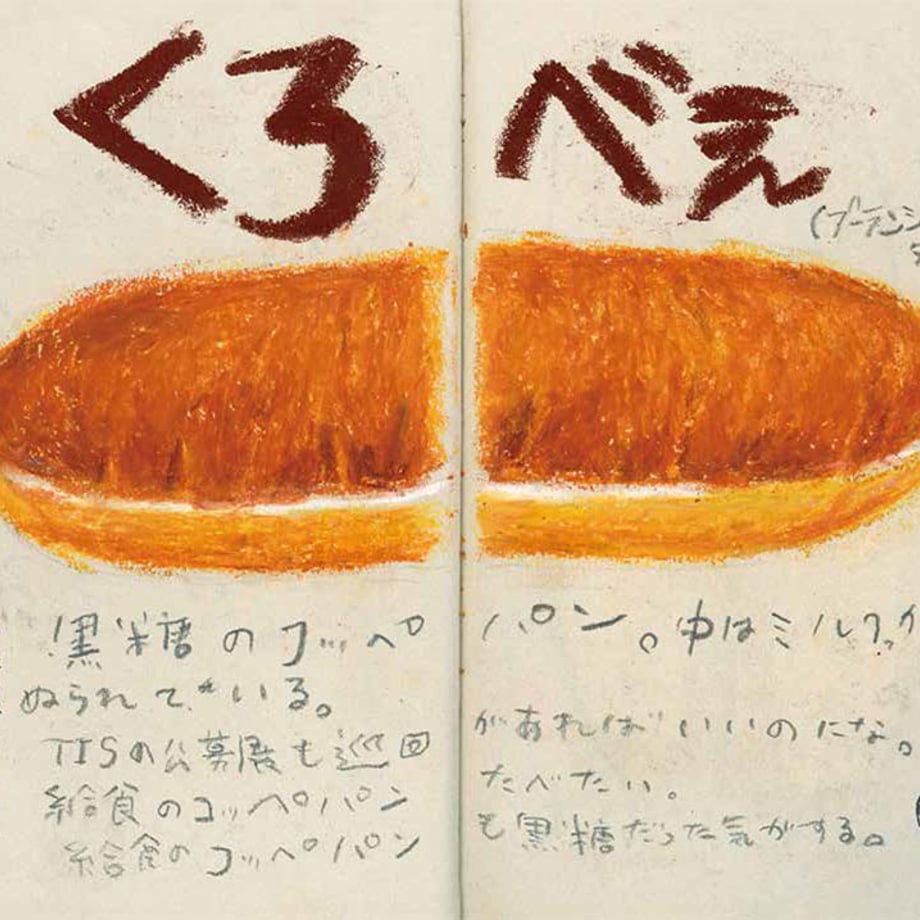 くろべぇ
(ブーランジ
黒糖のコッペパン。中はミルク
ぬられている。
TISの公募展も巡回があればいいのにな。
給食のコッペパンたべたい。
給食のコッペパンも黒糖だった気がする。